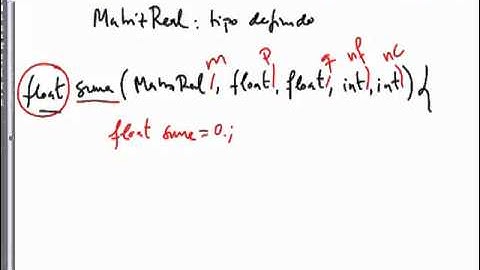 MatrizReal: tipo definido
m p q nf nc
float suma (MatrizReal, float, float, int, int) {
float suma = 0.;